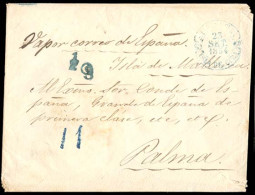 Vapor correo de España.
Isla de Mallorca
25
SET
19
Al Exmo. Sor. Conde de Es-
paña, Grande de España de
primera clase, etc. etc. etc.
11
Palma.